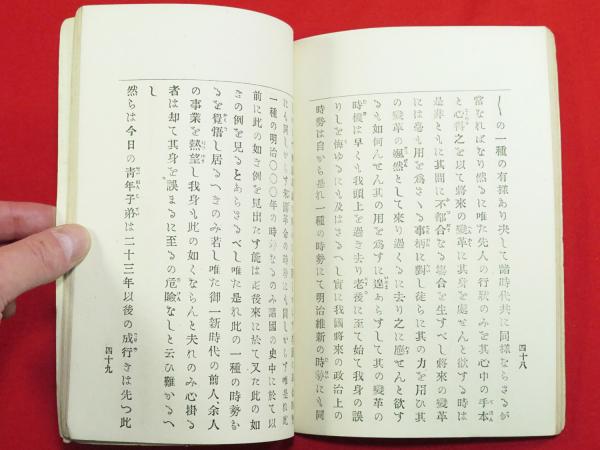 〳〵の一種の有樣あり决して諸時代共に同樣ならさるが
常なればなり然るに唯た先人の行狀のみを其心中の手本
と心得之を以て將來の變革に其身を處せんと欲する時は
是非ともに其間に不都合なる塲合を生すべし將來の變革
には毫も用を爲さゝる事柄に對し徒らに其力を用ひ其
の變革の颯然として來り過くるに去り之に應せんと欲す
るも如何んせん其の用を爲すに遑あらすして其の變革の
時機は早くも我頭上を過き去り老後に至て始て我身の誤
りしを悔ゆるにも及はさるへし實に我國將來の政治上の
時勢は自から是れ一種の時勢にて明治維新の時勢にも同
四十八
一種の明治〇〇〇年の時勢なるのみ諸國の史中に於て以
前に此の如き例を見出たす能は正後來に於て又た此の如
きの例を見るとあらさるべし唯た是れ此の一種の時勢な
るを覺悟し居るへきのみ若し唯た御一新時代の前人、余人
の事業を熱望し我身も此の如くならんと夫れのみ心掛る
者は却て其身を誤まるに至るの危險なしと云ひ難かるへ
し
然らは今日の青年子弟は二十三年以後の成行きは先つ此
四十九